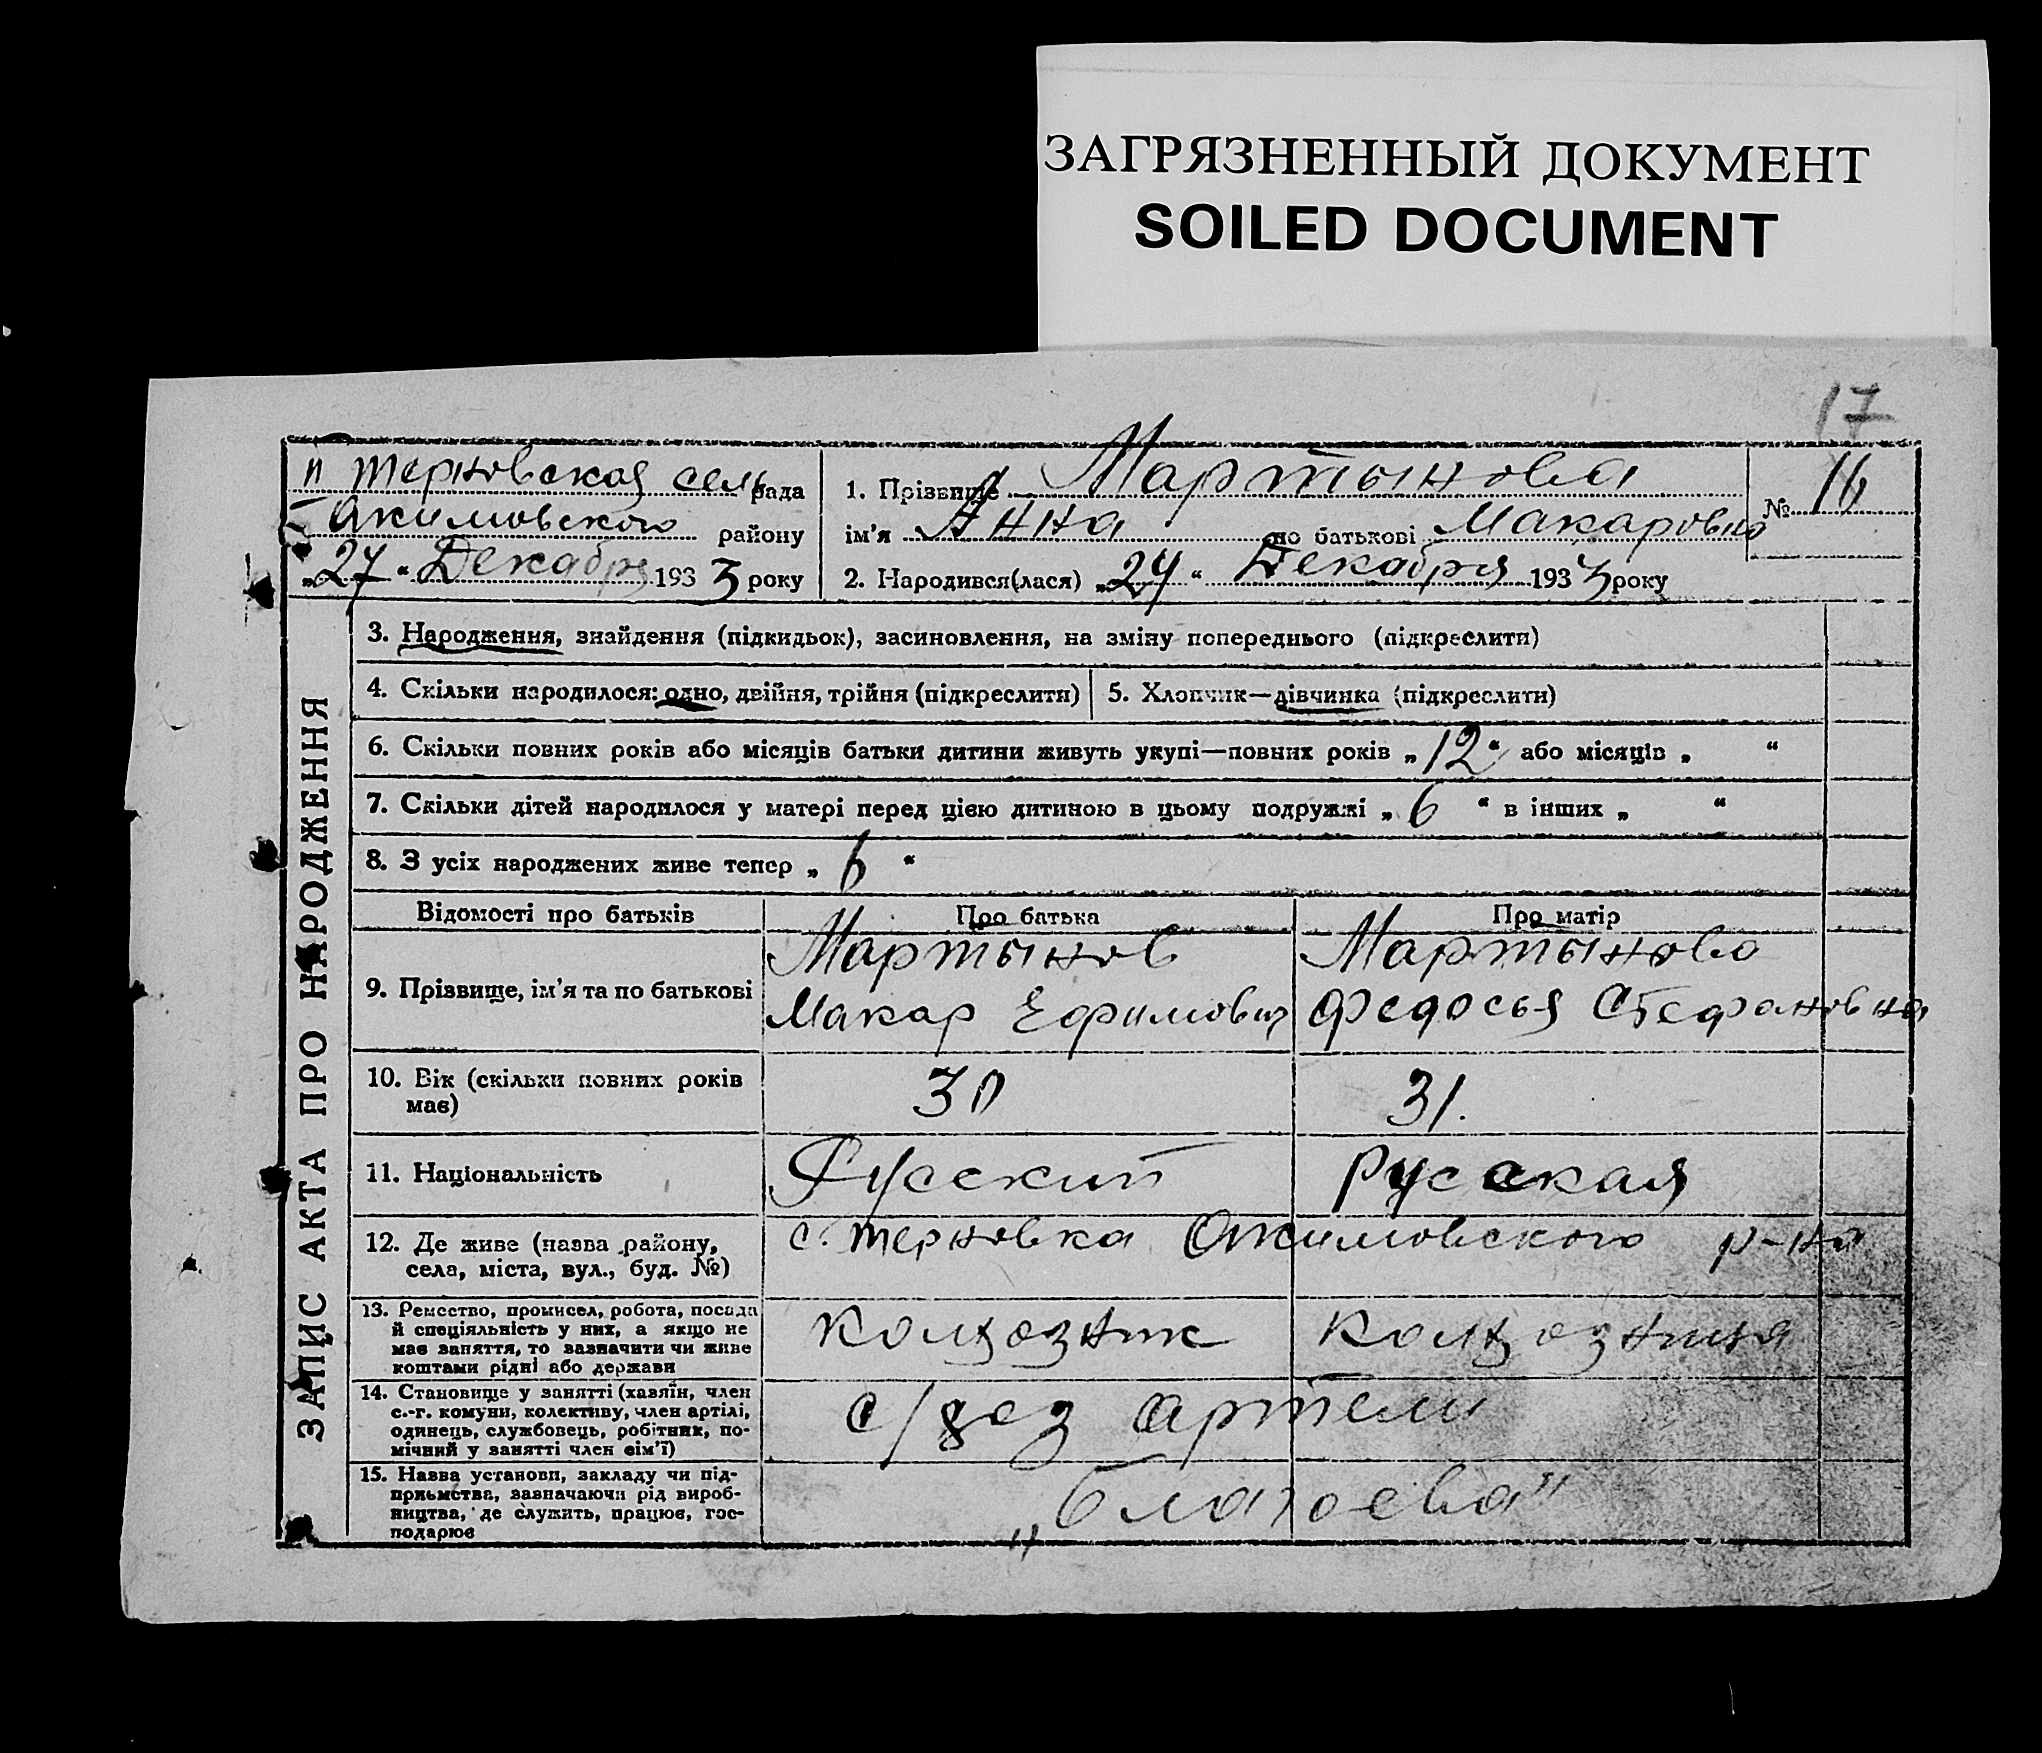 ЗАГРЯЗНЕННЫЙ ДОКУМЕНТ
SOILED DOCUMENT
17
Терновская сель рада
Акимовского району
„27“ Декабря 1933 року
1. Прізвище Мартынова
ім’я Анна по батькові Макаровна
№ 16
2. Народився(лася) „24“ Декабря 1933 року
ЗАПИС АКТА ПРО НАРОДЖЕННЯ
3. Народження, знайдення (підкидьок), засиновлення, на зміну попереднього (підкреслити)
4. Скільки народилося: одно, двійня, трійня (підкреслити)
5. Хлопчик—дівчинка (підкреслити)
6. Скільки повних років або місяців батьки дитини живуть укупі—повних років „12“ або місяців „ “
7. Скільки дітей народилося у матері перед цією дитиною в цьому подружжі „6“ в інших „ “
8. З усіх народжених живе тепер „6“
Відомості про батьків Про батька Про матір
9. Прізвище, ім’я та по батькові
Мартынов
Макар Ефимович
Мартынова
Федосья Стефановна
10. Вік (скільки повних років
має)
30
31.
11. Національність
Русский
Русская
12. Де живе (назва району,
села, міста, вул., буд. №)
с. Терновка Акимовского р-на
13. Ремество, промисел, робота, посада
й спеціяльність у них, а якщо не
має заняття, то зазначити чи живе
коштами рідні або держави
колхозник
колхозница
14. Становище у занятті (хазяїн, член
с.-г. комуни, колективу, член артілі,
одинець, службовець, робітник, по-
мічний у занятті член сім’ї)
с/хоз артели
15. Назва установи, закладу чи під-
приємства, зазначаючи рід вироб-
ництва, де служить, працює, гос-
подарює
„Благоева“